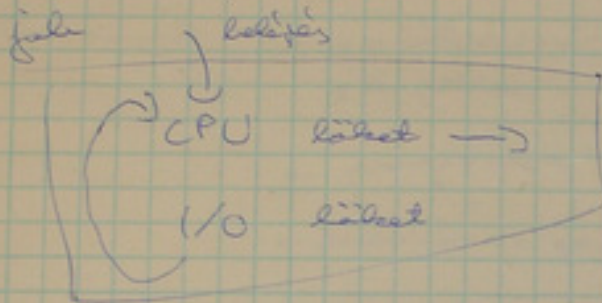 job belépés
CPU löket
I/O löket